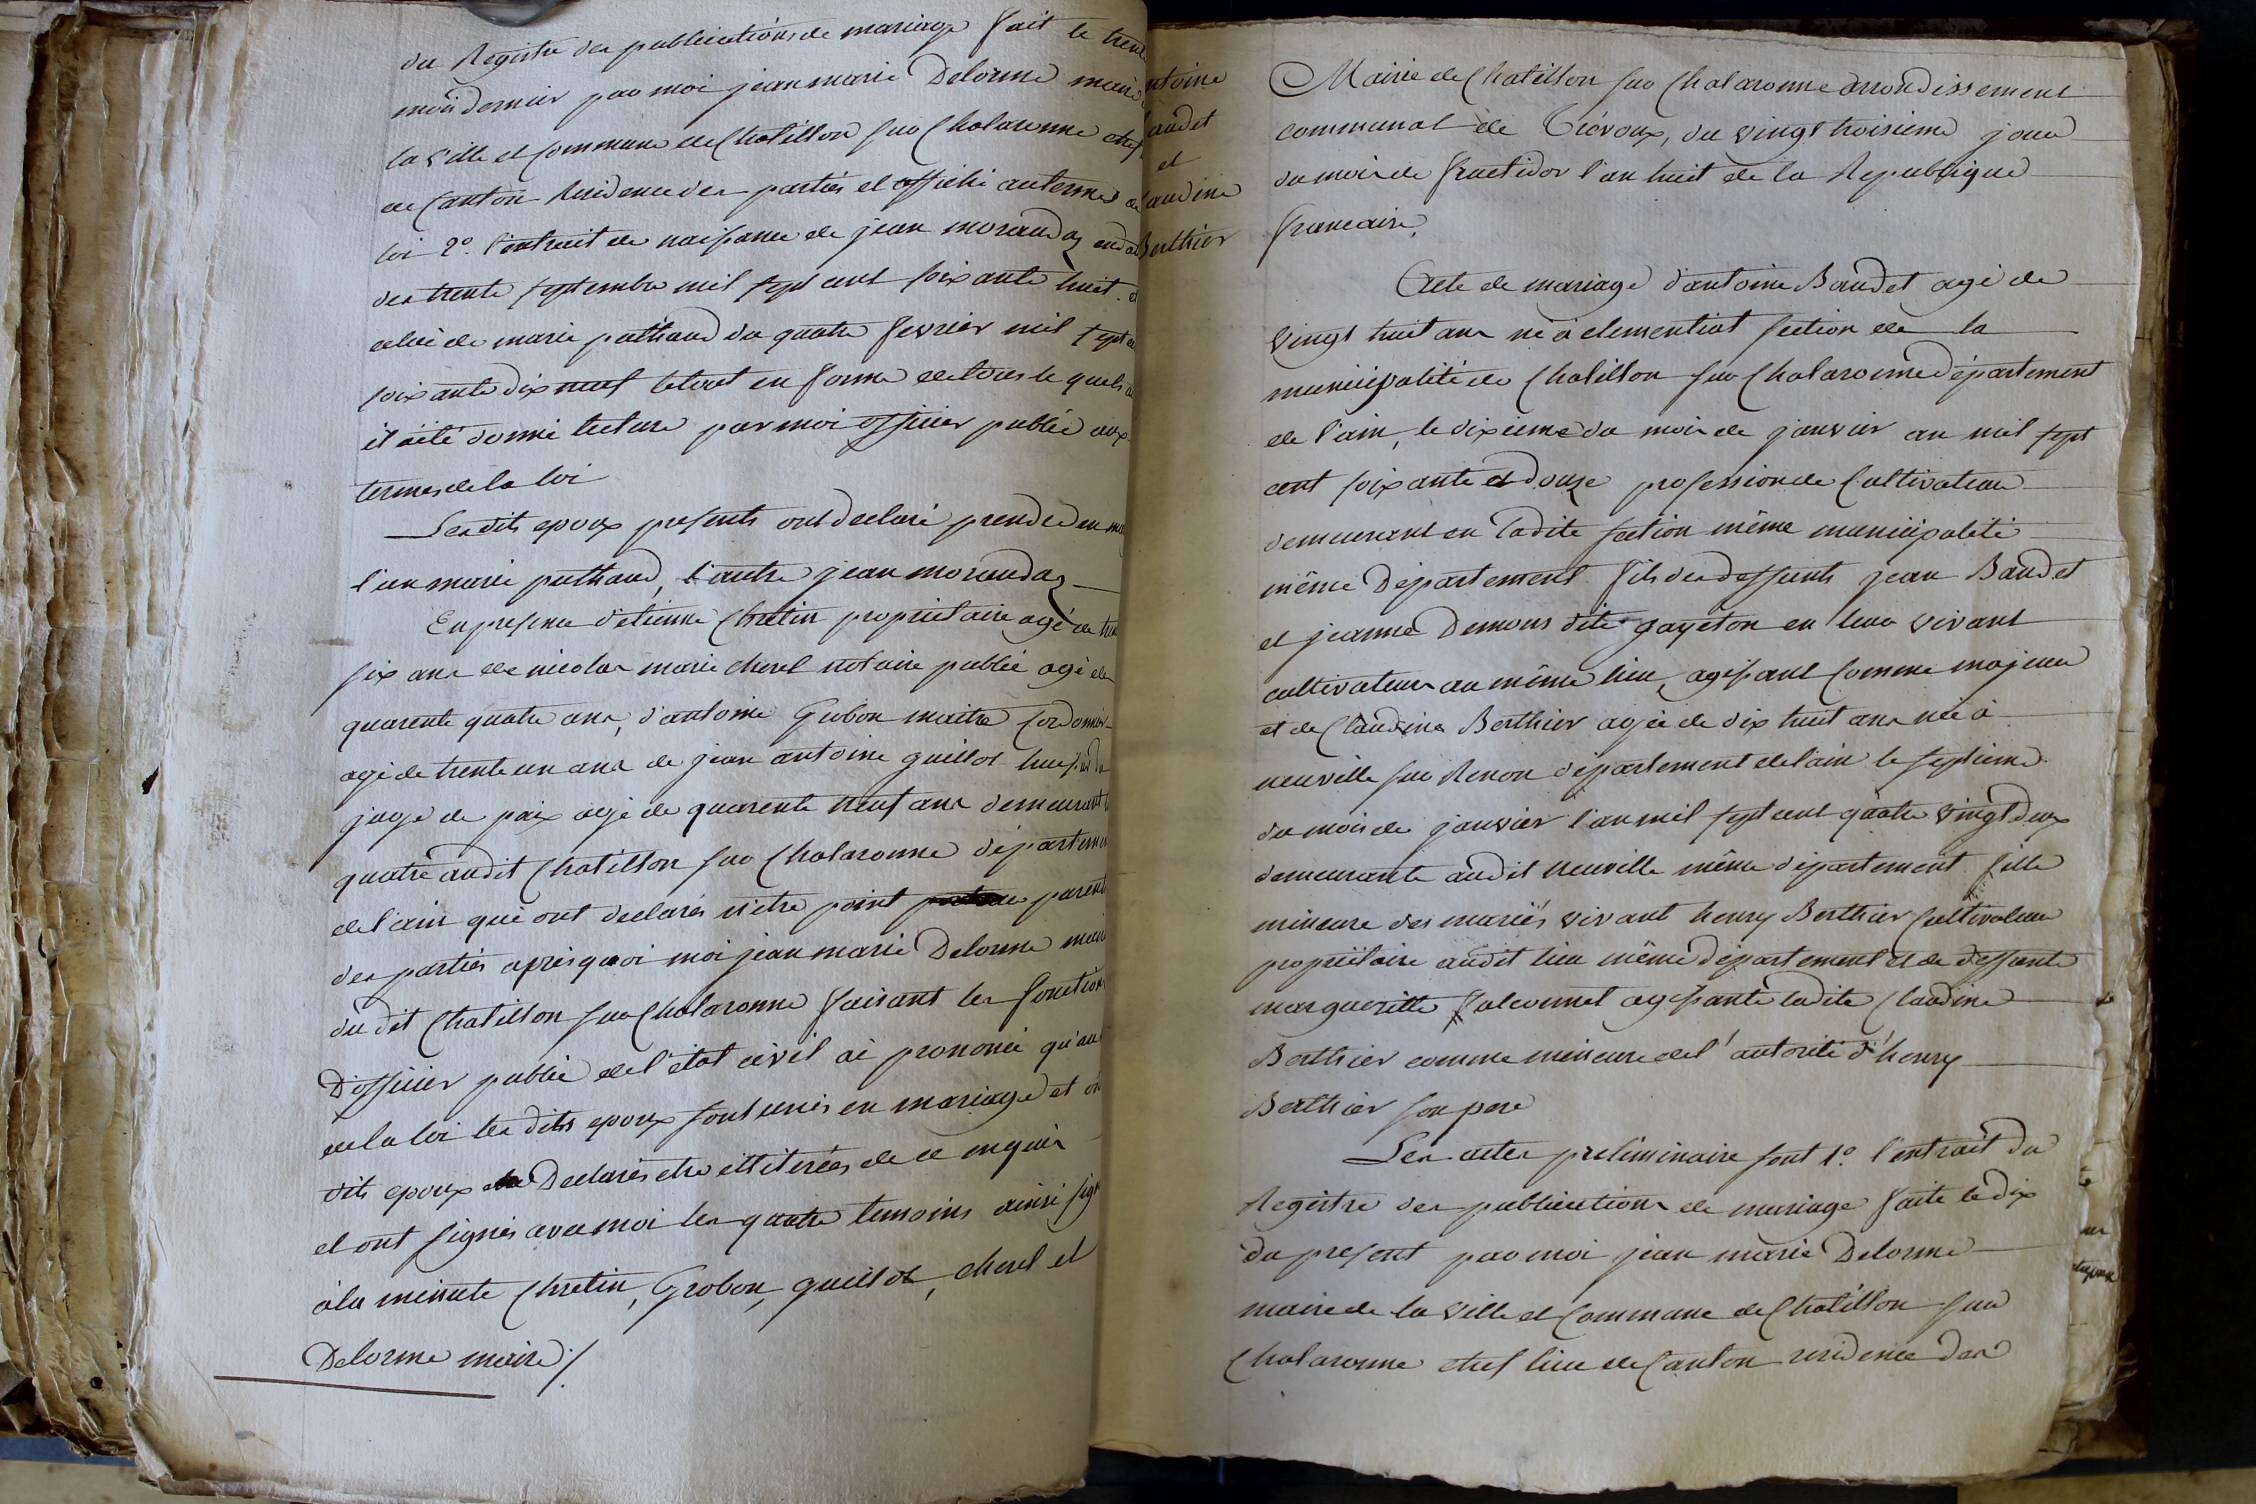 du Registre des publications de mariage fait le trente
mois dernier par moi jean marie Delorme maire
la ville et Commune de Chatillon sur Chalaronne chef
de Canton Residence des parties et affiché au termes de
loi 2º. l'extrait de naissance de jean morandas en date
des trente septembre mil sept cent soixante huit. et
celui de marie pathaud du quatre fevrier mil sept cent
soixante dix neuf letout en forme de tous le quels
il a été donné lecture par moi officier public aux
termes de la loi
Les dits epoux presents ont declaré prendre en
l'un marie pathaud, l'autre jean morandas
En presence d'etienne Chretin proprietaire agé de
six ans de nicolas marie cherel notaire public agé de
quarente quatre ans, d'antoine Grobon maitre Cordonnier
agé de trente un ans de jean antoine guillot huissier
juge de paix agé de quarente neuf ans demeurant
quatre audit Chatillon sur Chalaronne departement
de l'ain qui ont declarés n'etre point parents
des parties apres quoi moi jean marie Delorme maire
du dit Chatillon sur Chalaronne faisant les fonctions
D'officier public de l'etat civil ai prononcé qu'au
de la loi les dits epoux sont unis en mariage et
dits epoux Declarés etre illiterées de ce enquis
et ont signés avec moi les quatre temoins ainsi signé
à la minute Chretin, Grobon, guillot, cherel et
Delorme maire /.
antoine
Baudet
et
Claudine
Berthier
Mairie de Chatillon sur Chalaronne arrondissement
communal de Trévoux, du vingt troisieme jour
du mois de fructidor l'an huit de la Republique
francaise,
Acte de mariage d'antoine Baudet agé de
vingt huit ans né à clementiat section de la
municipalité de Chatillon sur Chalaronne département
de l'ain, le dixieme du mois de janvier an mil sept
cent soixante et douze profession de Cultivateur
demeurant en ladite section même municipalité
même Département fils des deffunts jean Baudet
et jeanne Demons dite gayeton en leur vivant
cultivateurs au même lieu, agissant comme majeur
et de Claudine Berthier agée de dix huit ans née à
neuville sur Renon département de l'ain le septieme
du mois de janvier l'an mil sept cent quatre vingt deux
demeurante audit neuville même département fille
mineure des mariés vivant henry Berthier Cultivateur
proprietaire audit lieu même département et de deffunte
margueritte falconnet agissante ladite Claudine
Berthier comme mineure de l'autorité d'henry
Berthier son pere
Les actes preliminaire sont 1º. l'extrait du
Registre des publications de mariage faite le dix
du present par moi jean marie Delorme
maire de la ville et Commune de Chatillon sur
Chalaronne chef lieu de Canton residence des